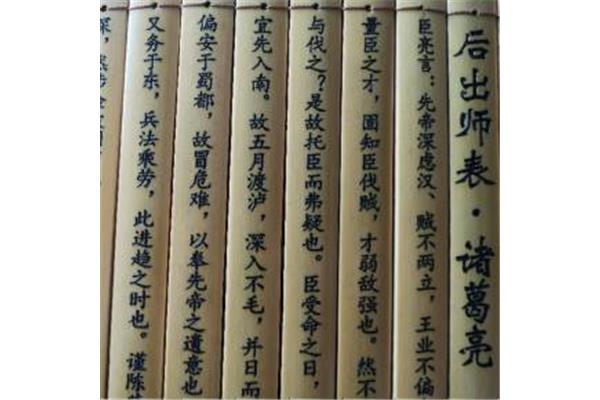 后出师表·诸葛亮
臣亮言:先帝深虑汉、贼不两立,王业不偏
量臣之才,固知臣伐贼,才弱敌强也。然不
与伐之?是故托臣而弗疑也。臣受命之日,
宜先入南。故五月渡泸,深入不毛,并日而
偏安于蜀都,故冒危难,以奉先帝之遗意也
又务于东,兵法乘劳,此进趋之时也。谨陈